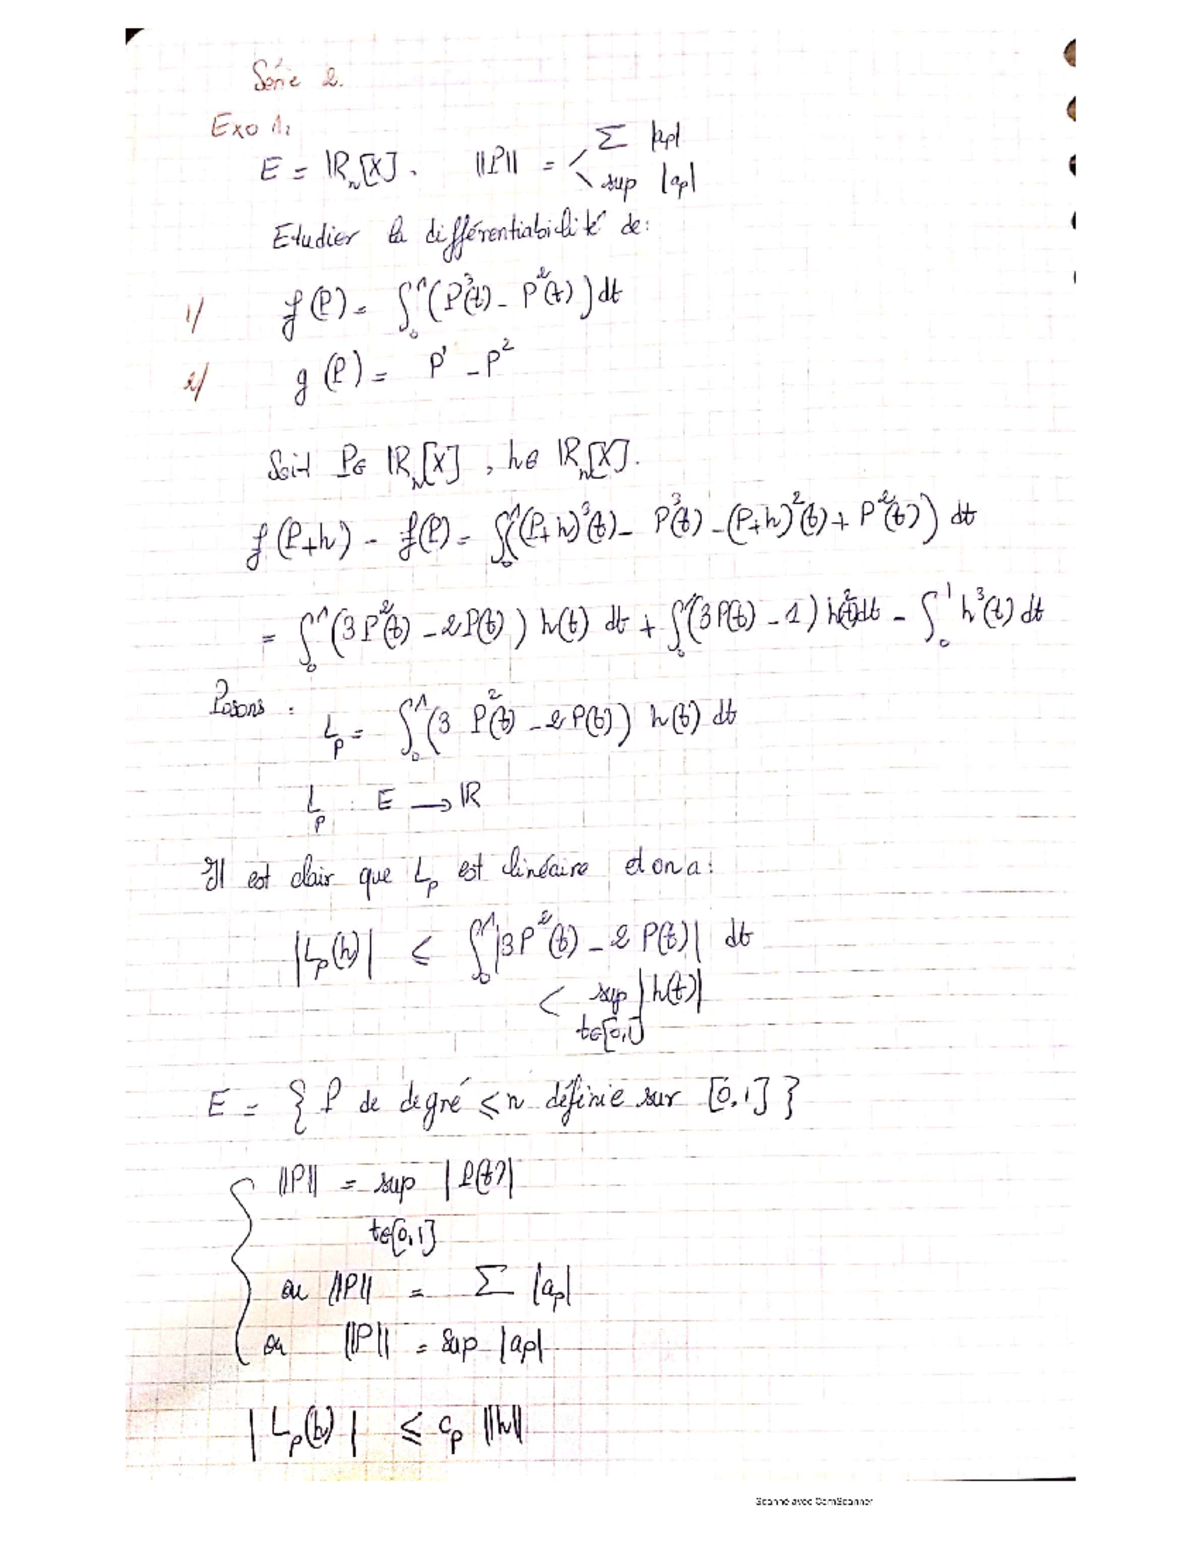 Série 2.
Exo 1:
E = ℝₙ[X]. ‖P‖ = < Σ |ap|
sup |ap|
Etudier la différentiabilité de:
1/ f(P) = ∫₀¹ (P³(t) - P²(t)) dt
2/ g(P) = P' - P²
Soit P∈ ℝₙ[X], h∈ ℝₙ[X].
f(P+h) - f(P) = ∫₀¹ ((P+h)³(t) - P³(t) - (P+h)²(t) + P²(t)) dt
= ∫₀¹ (3P²(t) - 2P(t)) h(t) dt + ∫₀¹ (3P(t) - 1) h²(t)dt - ∫₀¹ h³(t) dt
Posons :
L_P = ∫₀¹ (3 P²(t) - 2P(t)) h(t) dt
L_P : E → ℝ
Il est clair que L_P est linéaire et on a:
|L_P(h)| ≤ ∫₀¹ |3P²(t) - 2 P(t)| dt
< sup |h(t)|
t∈[0,1]
E = { P de degré ≤ n définie sur [0,1] }
‖P‖ = sup |P(t)|
t∈[0,1]
ou ‖P‖ = Σ |ap|
ou ‖P‖ = sup |ap|
|L_P(h)| ≤ c_P ‖h‖
Scanné avec CamScanner